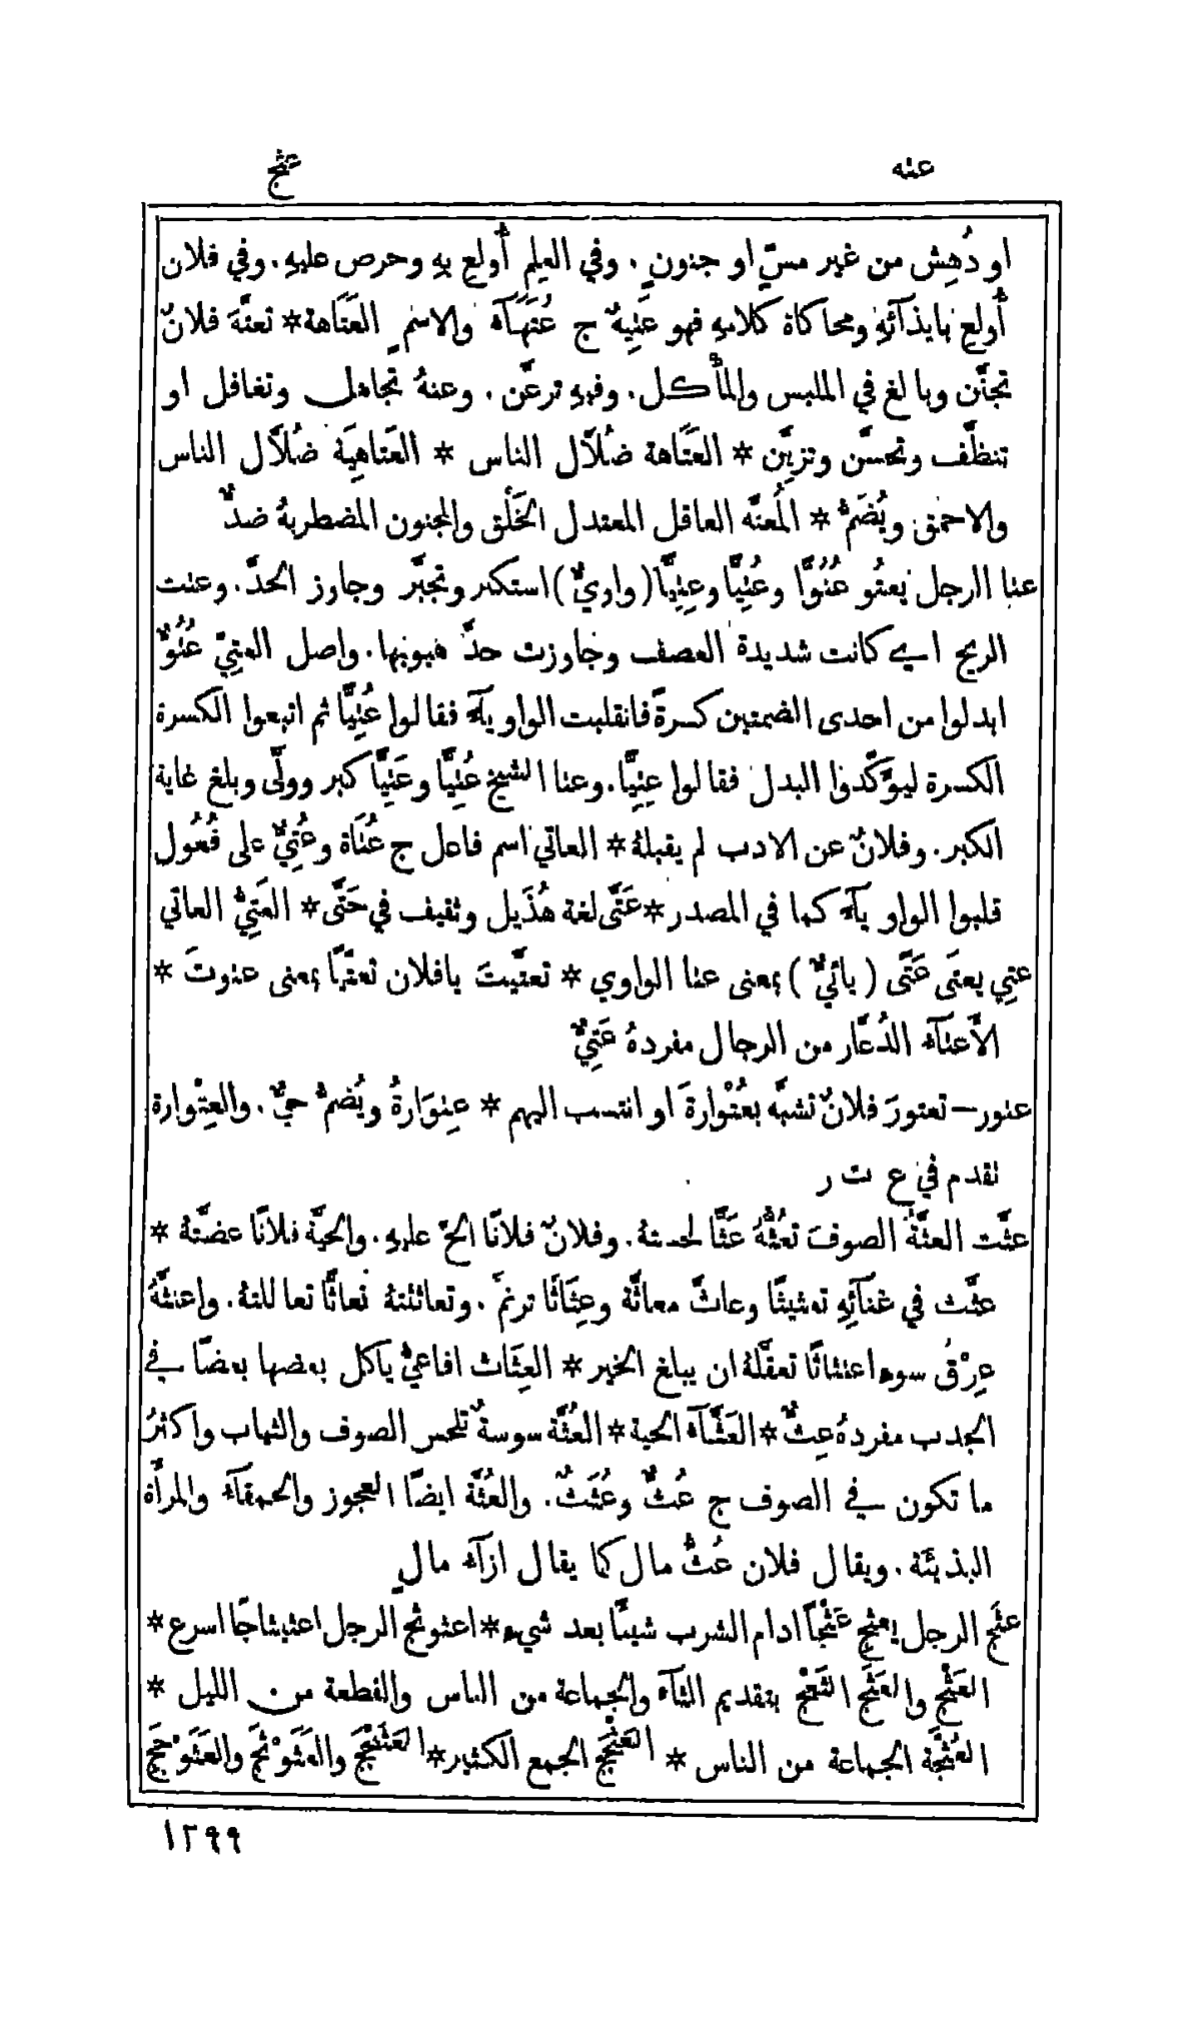 عته
عثج
او دُهِش من غير مسّ او جنونٍ. وفي العلم أُولع بهِ وحرص عليهِ. وفي فلان
أُولع بايذآئهِ ومحاكاة كلامهِ فهو عَتِيهٌ ج عُتَهَآء والاسم العَتَاهة * تعتَّهَ فلانٌ
تجنَّن وبالغ في الملبس والمأكل. وفيهِ ترعَّن. وعنهُ تجاهل وتغافل او
تنظَّف وتحسَّن وتزيَّن * العَتَاهة ضُلاَّل الناس * العَتَاهِيَة ضُلاَّل الناس
والاحمق ويُضَمُّ * المُعتَّه العاقل المعتدل الخَلْق والمجنون المضطربهُ ضدٌّ
عتا الرجل يَعتُو عُتُوًّا وعُتِيًّا وعِتِيًّا (واويٌّ) استكبر وتجبَّر وجاوز الحدَّ. وعتت
الريح اي كانت شديدة العصف وجاوزت حدَّ هبوبها. واصل العتيّ عُتُوٌّ
ابدلوا من احدى الضمتين كسرةً فانقلبت الواو يآءً فقالوا عُتِيًّا ثم اتبعوا الكسرة
الكسرة ليؤَكّدوا البدل فقالوا عِتِيًّا. وعتا الشيخ عُتِيًّا وعَتِيًّا كبر وولَّى وبلغ غاية
الكبر. وفلانٌ عن الادب لم يقبلهُ * العاتي اسم فاعل ج عُتَاة وعُتِيٌّ على فُعُول
قلبوا الواو يآءً كما في المصدر * عَتَّى لغة هُذَيل وثقيف في حَتَّى * العَتِيُّ العاتي
عتِي يعتَى عَتًى (يائيٌّ) بمعنى عتا الواوي * تعتَّيتَ يافلان تعتّيًا بمعنى عتوتَ *
الأَعتآء الدُعَّار من الرجال مفردهُ عَتِيٌّ
عتور – تعتورَ فلانٌ تشبَّه بعُتْوارةَ او انتسب اليهم * عِتوَارةُ ويُضمُّ حيٌّ. والعِتْوارة
تقدم في ع ت ر
عثَّت العثَّةُ الصوفَ تَعُثُّهُ عَثًّا لحستهُ. وفلانٌ فلانًا الحّ عليهِ. والحيَّة فلانًا عضَّتهُ *
عثَّث في غنآئهِ تعثيثًا وعاثَّ معاثَّة وعِثَاثًا ترنم. وتعاثثتهُ تعاثًّا تعاللتهُ. واعتثَّهُ
عِرْقُ سوء اعتثاثًا تعقَّلهُ ان يبلغ الخير * العِثَاث افاعيُّ ياكل بعضها بعضًا في
الجدب مفردهُ عِثٌّ * العَثَّآء الحية * العُثَّة سوسةٌ تلحس الصوف والثياب واكثرُ
ما تكون في الصوف ج عُثٌّ وعُثَثٌ. والعُثَّة ايضًا العجوز والحمقآء والمرأَة
البذيئَة. ويقال فلان عُثُّ مال كما يقال ازآء مالٍ
عثَج الرجل يعثِج عَثْجًا ادام الشرب شيئًا بعد شيء * اعثوثج الرجل اعثيثاجًا اسرع *
العَثْج والعَثَج الثَعَْج بتقديم الثآء والجماعة من الناس والقطعة من الليل *
العُثْجَة الجماعة من الناس * العَثْجَج الجمع الكثير * العَثَنْجَج والعَثَوْثَج والعَثَوْجَج
١٢٩٩